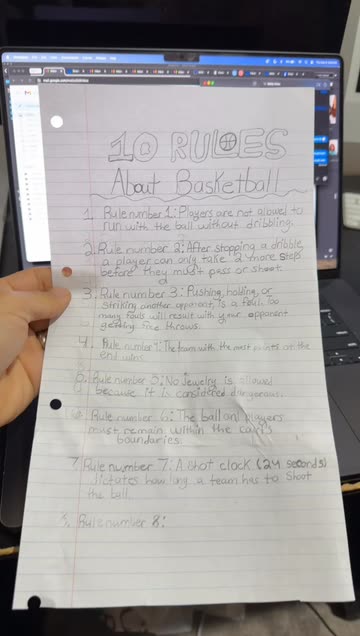 10 RULES
About Basketball
1. Rule number 1: Players are not allowed to
run with the ball without dribbling.
2. Rule number 2: After stopping a dribble,
a player can only take 2 more steps
before they must pass or shoot.
3. Rule number 3: Pushing, holding, or
striking another opponent, is a foul. Too
many fouls will result with your opponent
getting free throws.
4. Rule number 4: The team with the most points at the
end wins.
5. Rule number 5: No Jewelry is allowed
because it is considered dangerous.
6. Rule number 6: The ball and players
must remain within the court's
boundaries.
7. Rule number 7: A shot clock (24 seconds)
dictates how long a team has to shoot
the ball.
8. Rule number 8: